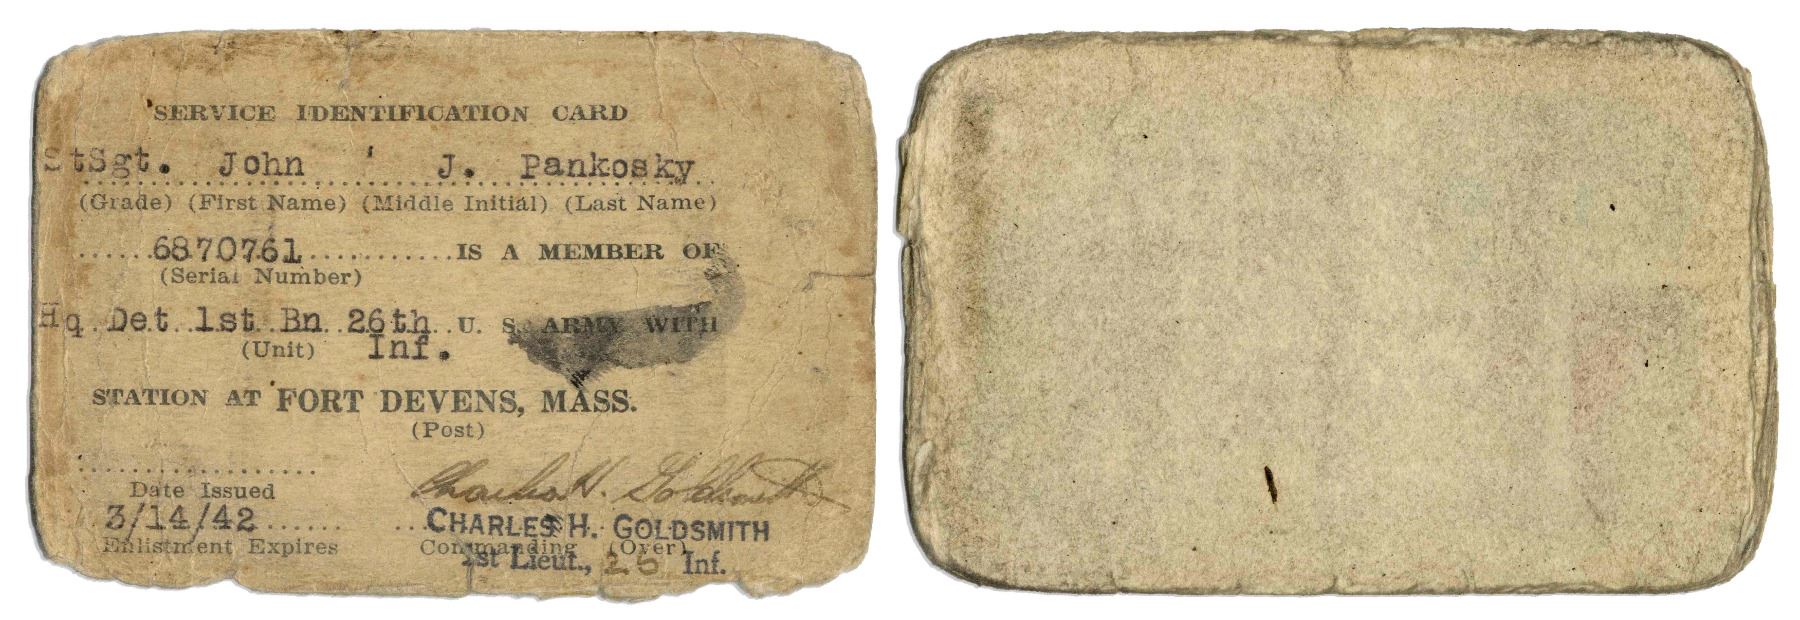 SERVICE IDENTIFICATION CARD
StSgt. John J. Pankosky
(Grade) (First Name) (Middle Initial) (Last Name)
......6870761............IS A MEMBER OF
(Serial Number)
Hq Det 1st Bn 26th U. S. ARMY WITH
(Unit) Inf.
STATION AT FORT DEVENS, MASS.
(Post)
Date Issued
Charles H. Goldsmith
3/14/42
CHARLES H. GOLDSMITH
Enlistment Expires
Commanding (Over)
1st Lieut., 26 Inf.